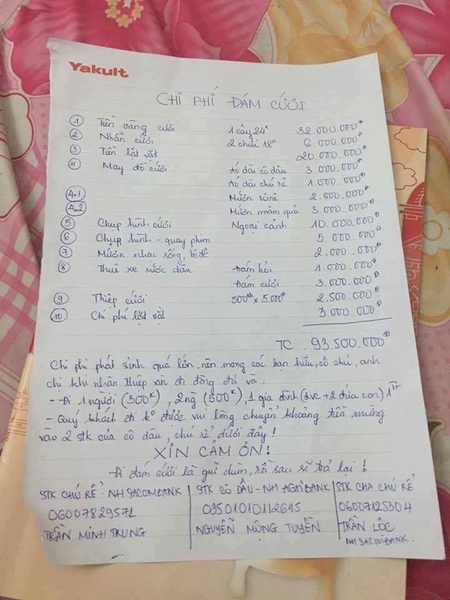 Yakult
CHI PHÍ ĐÁM CƯỚI
① Tiền vàng cưới 1 cây 24k 32.000.000đ
② Nhẫn cưới 2 chiếc 18k 6.000.000đ
③ Tiền lặt vặt 20.000.000đ
④ May đồ cưới Áo dài cô dâu 3.000.000đ
Áo dài chú rể 1.000.000đ
4.1 Mướn sôrê 2.000.000đ
4.2 Mướn mâm quả 3.000.000đ
⑤ Chụp hình cưới Ngoại cảnh 10.000.000đ
⑥ Chụp hình - quay phim 5.000.000đ
⑦ Mướn nhạc sống, bê đê 2.000.000đ
⑧ Thuê xe rước dâu Đám hỏi 1.000.000đ
Đám cưới 3.000.000đ
⑨ Thiệp cưới 500 x 5.000đ 2.500.000đ
⑩ Chi phí lặt vặt 3.000.000đ
TC 93.500.000đ
Chi phí phát sinh quá lớn, nên mong các bạn hữu, cô chú, anh
chị khi nhận thiệp xin đi đồng đủ và
- Đi 1 người (300k), 2ng (500k), 1 gia đình (2vc + 2 đứa con) 1tr
- Quý khách đi ko được vui lòng chuyển khoảng tiền mừng
vào 2 stk của cô dâu, chú rể dưới đây!
XIN CẢM ƠN!
Đi đám cưới là gửi dùm, rồi sau sẽ trả lại!
STK CHÚ RỂ - NH SACOMBANK
06007829571
TRẦN MINH TRUNG
STK CÔ DÂU - NH AGRIBANK
03501010112695
NGUYỄN MỘNG TUYỀN
STK CHA CHÚ RỂ
06007125304
TRẦN LỘC
NH SACOMBANK